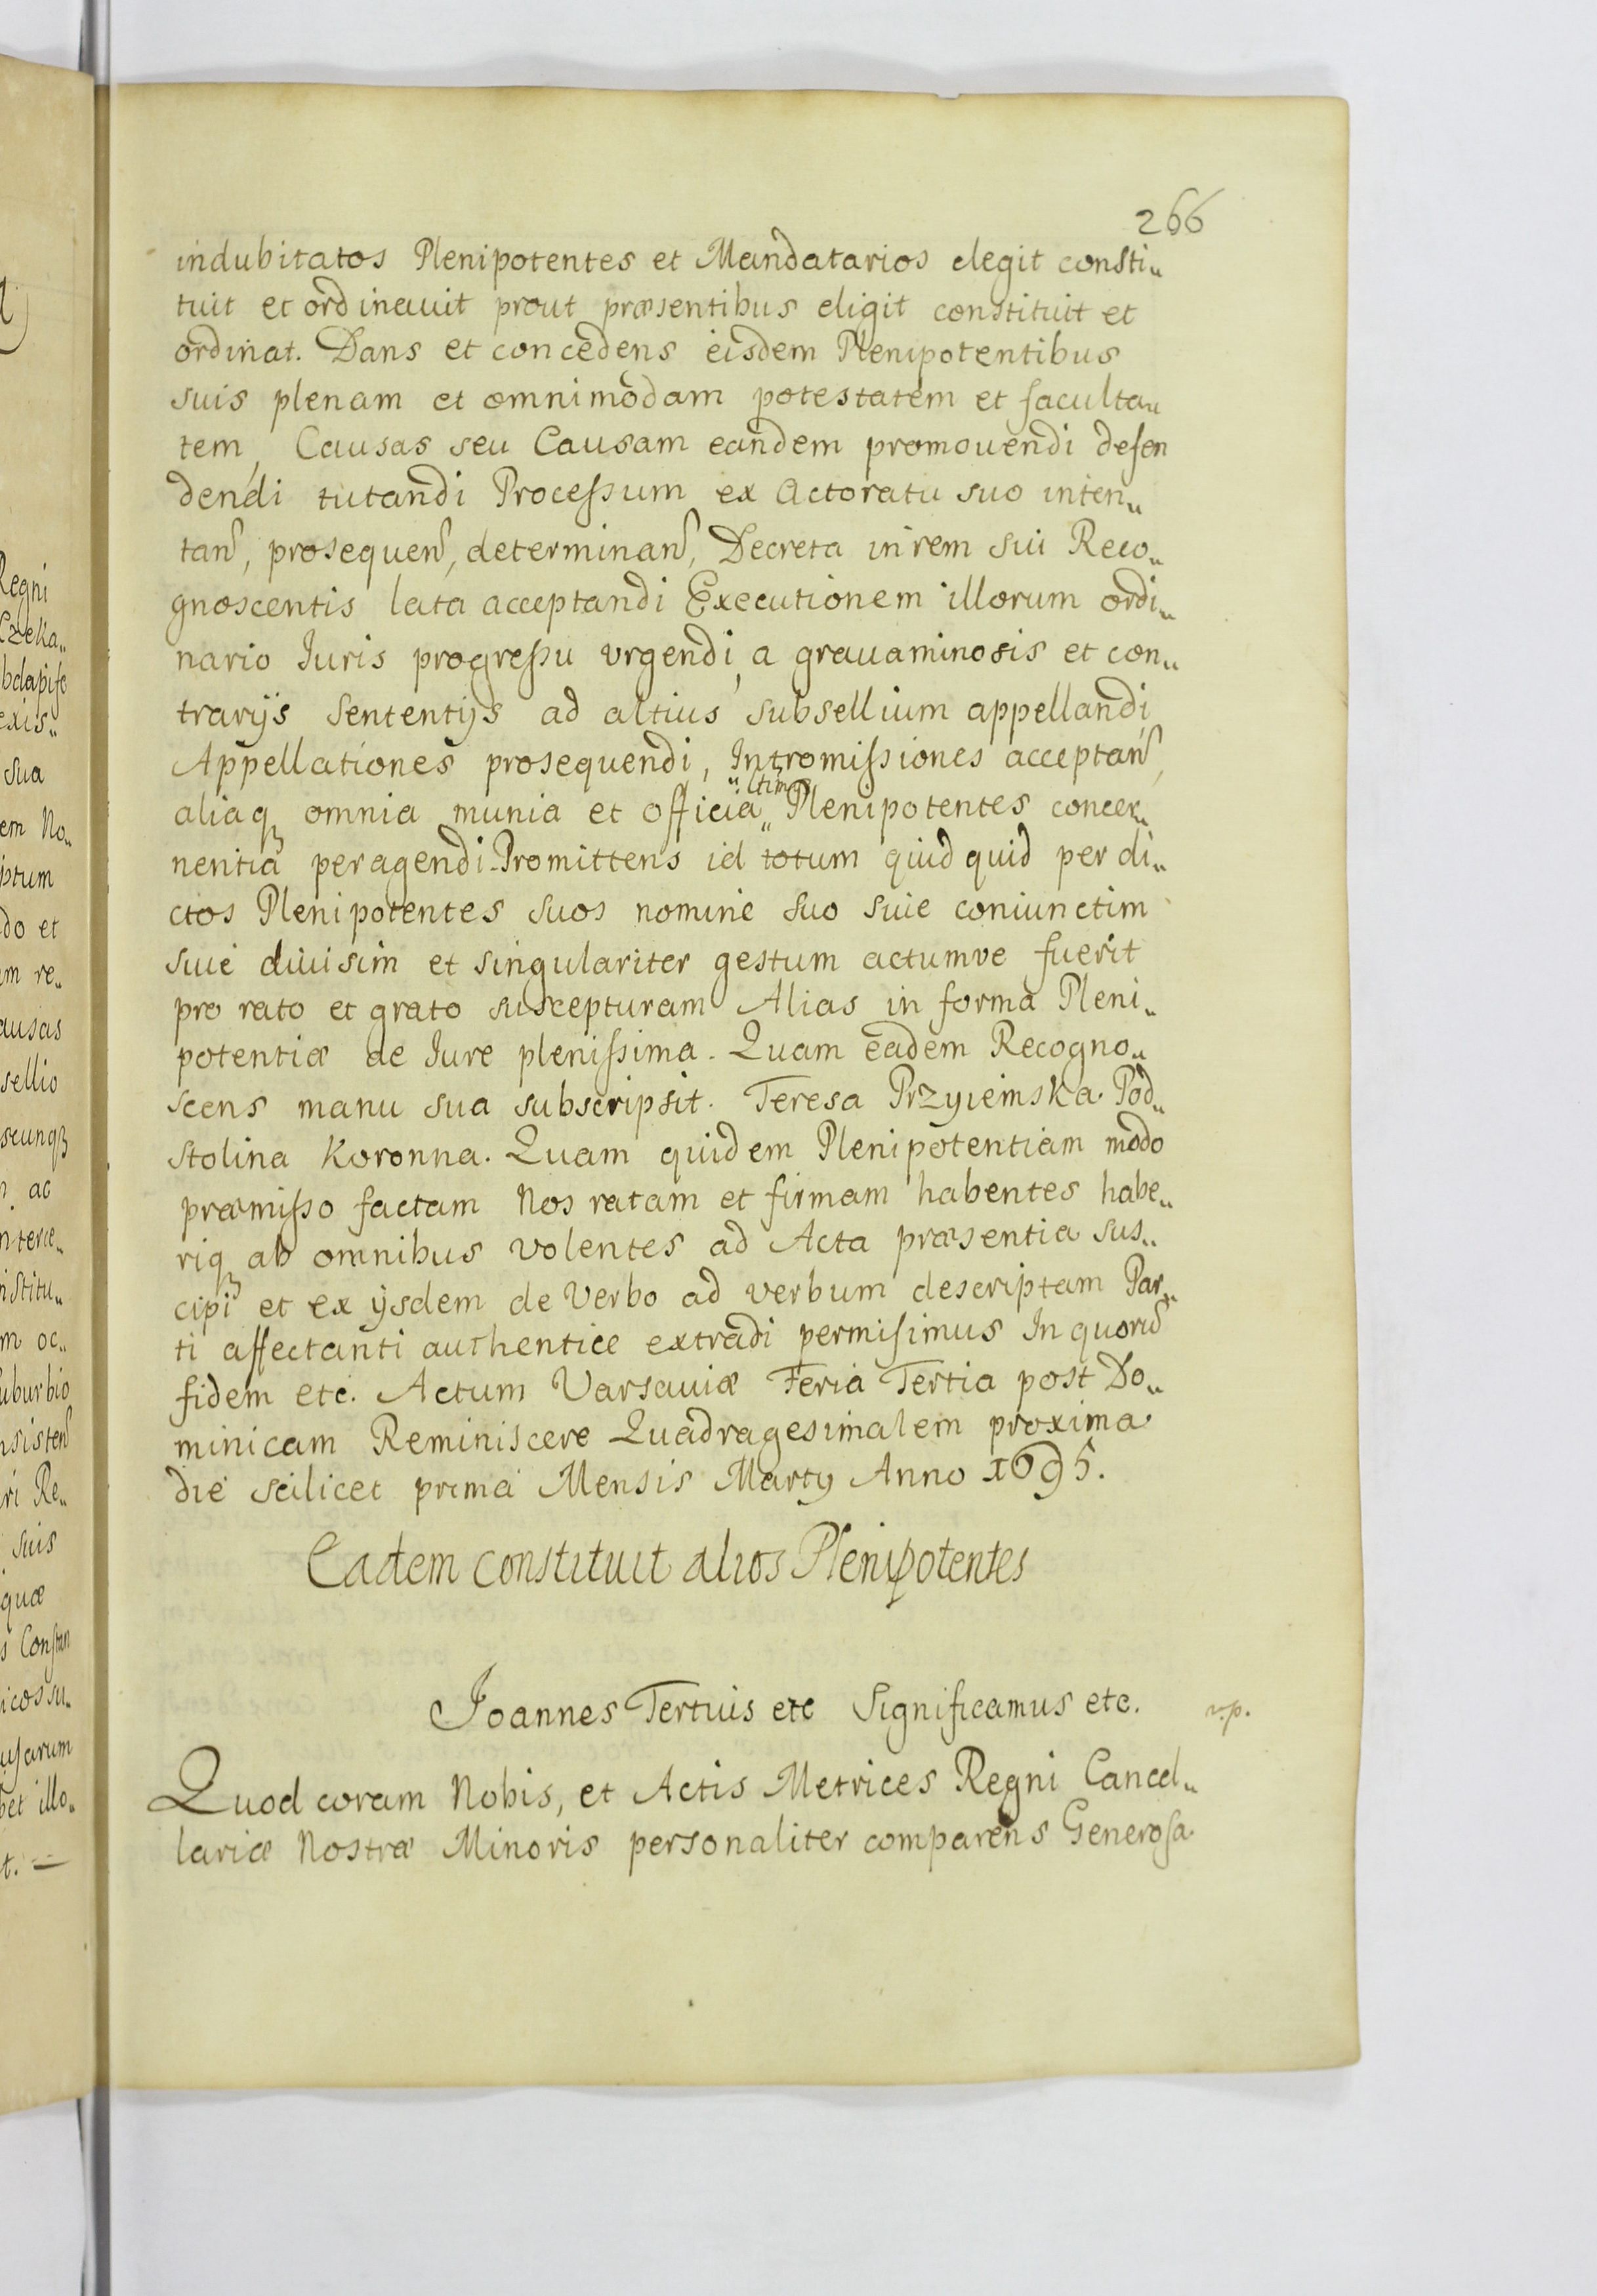 266
indubitatos Plenipotentes et Mandatarios elegit consti„
tuit et ordinauit prout præsentibus eligit constituit et
ordinat. Dans et concedens eisdem Plenipotentibus
suis plenam et omnimodam potestatem et faculta„
tem, Causas seu Causam eandem promouendi defen
dendi tutandi Processum ex Actoratu suo inten„
tan, prosequen, determinan, Decreta in rem sui Reco„
gnoscentis lata acceptandi Executionem illorum ordi„
nario Iuris progressu vrgendi, a grauaminosis et con„
trarijs Sententijs ad altius subsellium appellandi,
Appellationes prosequendi, Intromissiones acceptan,
aliaqꝫ omnia munia et officia„ Plenipotentes concer„
nentia peragendi. Promittens id totum quidquid per di„
ctos Plenipotentes suos nomine suo siue coniunctim
siue diuisim et singulariter gestum actumve fuerit
pro rato et grato suscepturam Alias in forma Pleni„
potentiæ de Iure plenissima. Quam eadem Recogno„
scens manu sua subscripsit. Teresa Przyiemska Pod„
stolina Koronna. Quam quidem Plenipotentiam modo
præmisso factam Nos ratam et firmam habentes habe„
riqꝫ ab omnibus volentes ad Acta præsentia sus„
cipi et ex ijsdem de Verbo ad verbum descriptam Par„
ti affectanti authentice extradi permisimus In quoru
fidem etc. Actum Varsauiæ Feria Tertia post Do„
minicam Reminiscere Quadragesimalem proxima
die scilicet prima Mensis Martij Anno 1695.
Eadem constituit alios Plenipotentes
Joannes Tertius etc Significamus etc. r.p.
Quod coram Nobis, et Actis Metrices Regni Cancel„
lariæ Nostræ Minoris personaliter comparens Generosa